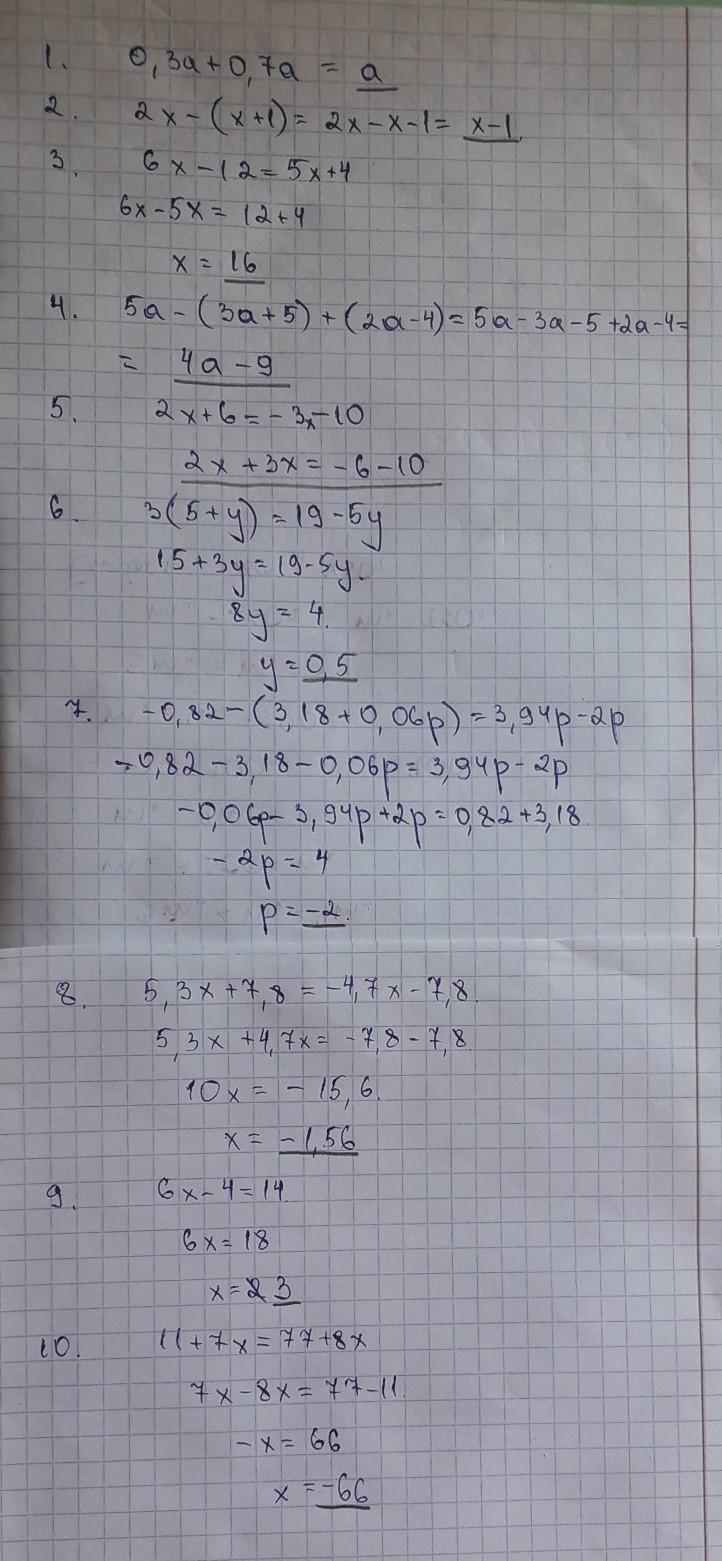 1. 0,3a+0,7a = a
2. 2x-(x+1)= 2x-x-1= x-1
3. 6x-12=5x+4
6x-5x= 12+4
x = 16
4. 5a-(3a+5)+(2a-4)=5a-3a-5+2a-4=
= 4a-9
5. 2x+6=-3x-10
2x+3x=-6-10
6. 3(5+y)=19-5y
15+3y=19-5y
8y= 4
y=0,5
7. -0,82-(3,18+0,06p)=3,94p-2p
-0,82-3,18-0,06p=3,94p-2p
-0,06p-3,94p+2p=0,82+3,18
-2p= 4
p=-2
8. 5,3x+7,8=-4,7x-7,8
5,3x+4,7x=-7,8-7,8
10x= -15,6
x= -1,56
9. 6x-4=14
6x=18
x= 3
10. 11+7x=77+8x
7x-8x=77-11
-x= 66
x =-66